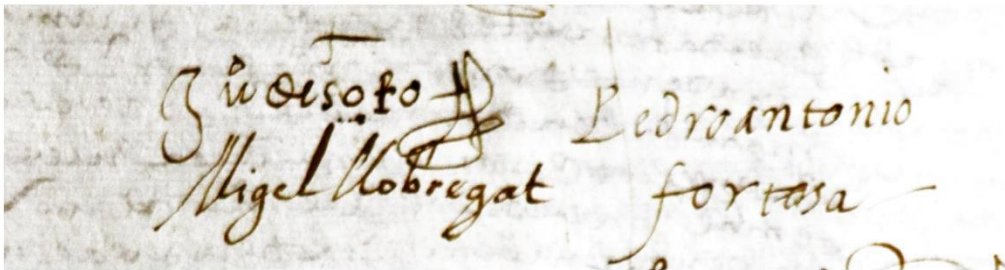 Ju° de soto
Migel llobregat
Pedro antonio
fortosa